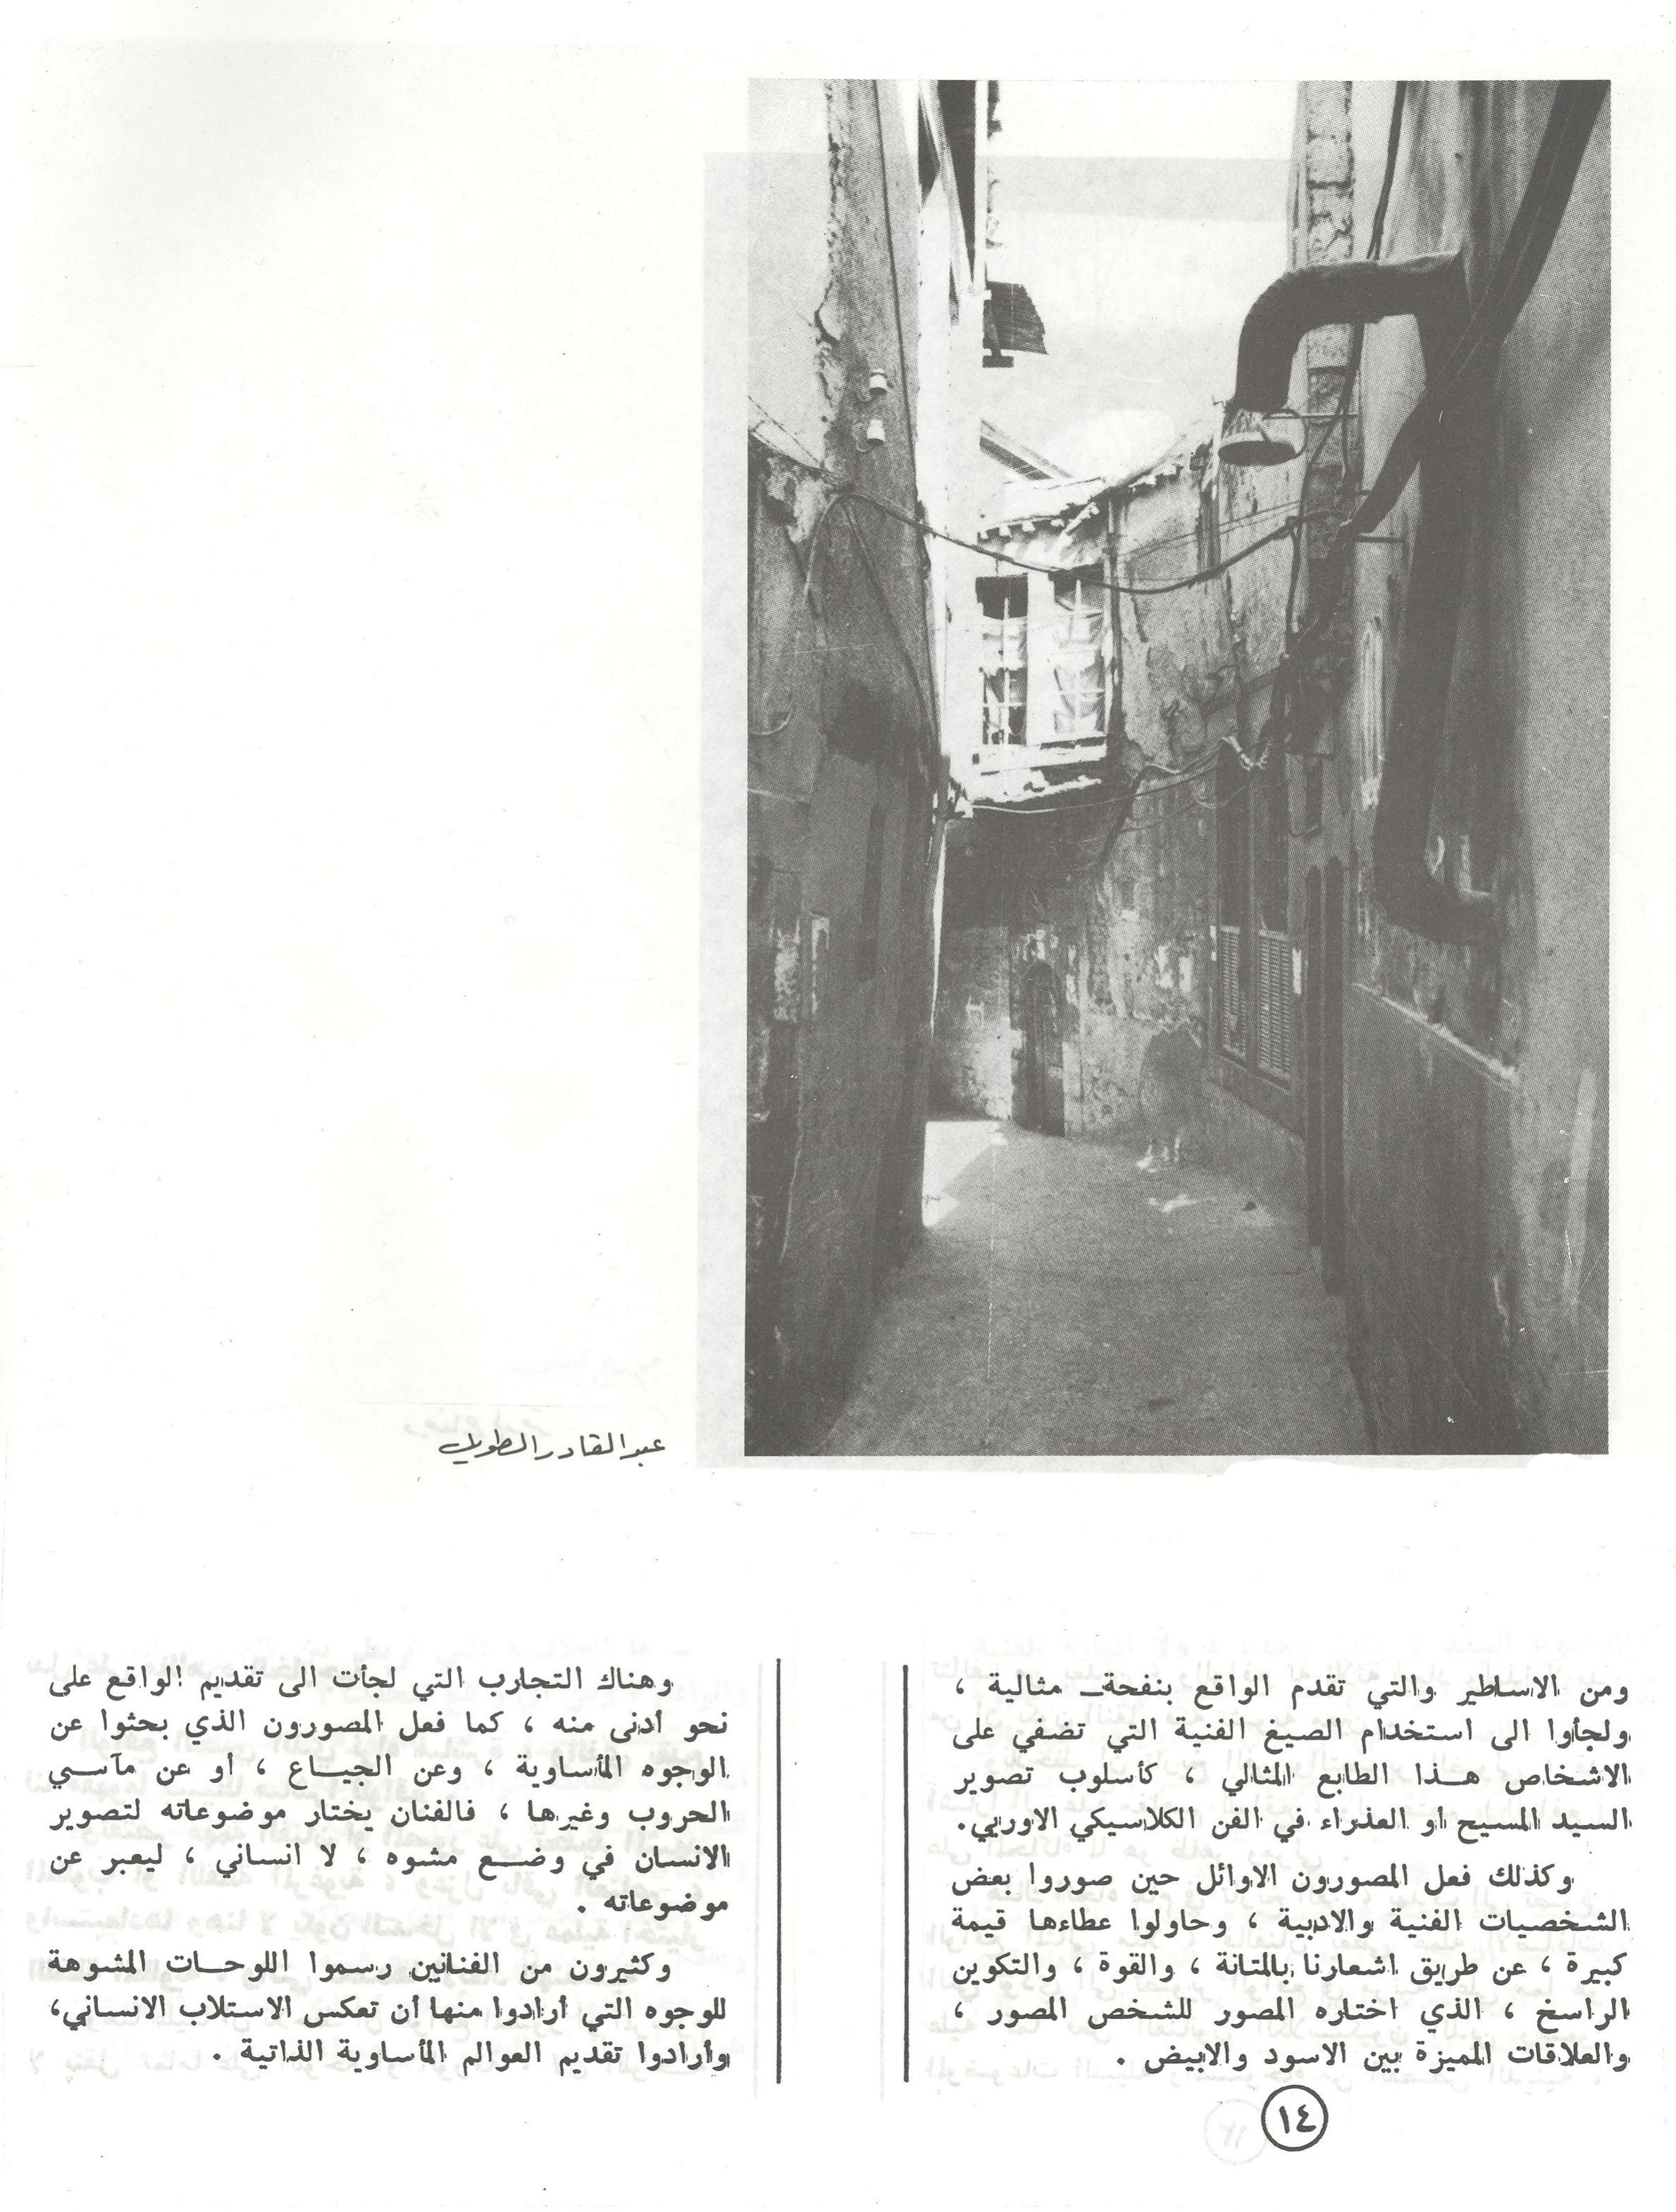 عبد القادر الطويل
ومن الاساطير والتي تقدم الواقع بنفحة مثالية ،
ولجأوا الى استخدام الصيغ الفنية التي تضفي على
الاشخاص هــذا الطابع المثالي ، كأسلوب تصوير
السيد المسيح او العذراء في الفن الكلاسيكي الاوربي.
وكذلك فعل المصورون الاوائل حين صوروا بعض
الشخصيات الفنية والادبية ، وحاولوا عطاءها قيمة
كبيرة ، عن طريق اشعارنا بالمتانة ، والقوة ، والتكوين
الراسخ ، الذي اختاره المصور للشخص المصور ،
والعلاقات المميزة بين الاسود والابيض .
وهناك التجارب التي لجأت الى تقديم الواقع على
نحو أدنى منه ، كما فعل المصورون الذي بحثوا عن
الوجوه المأساوية ، وعن الجيــاع ، أو عن مآســي
الحروب وغيرها ، فالفنان يختار موضوعاته لتصوير
الانسان في وضــع مشوه ، لا انساني ، ليعبر عن
موضوعاته .
وكثيرون من الفنانين رسموا اللوحــات المشوهة
للوجوه التي أرادوا منها أن تعكس الاستلاب الانساني،
وأرادوا تقديم العوالم المأساوية الذاتية .
١٤